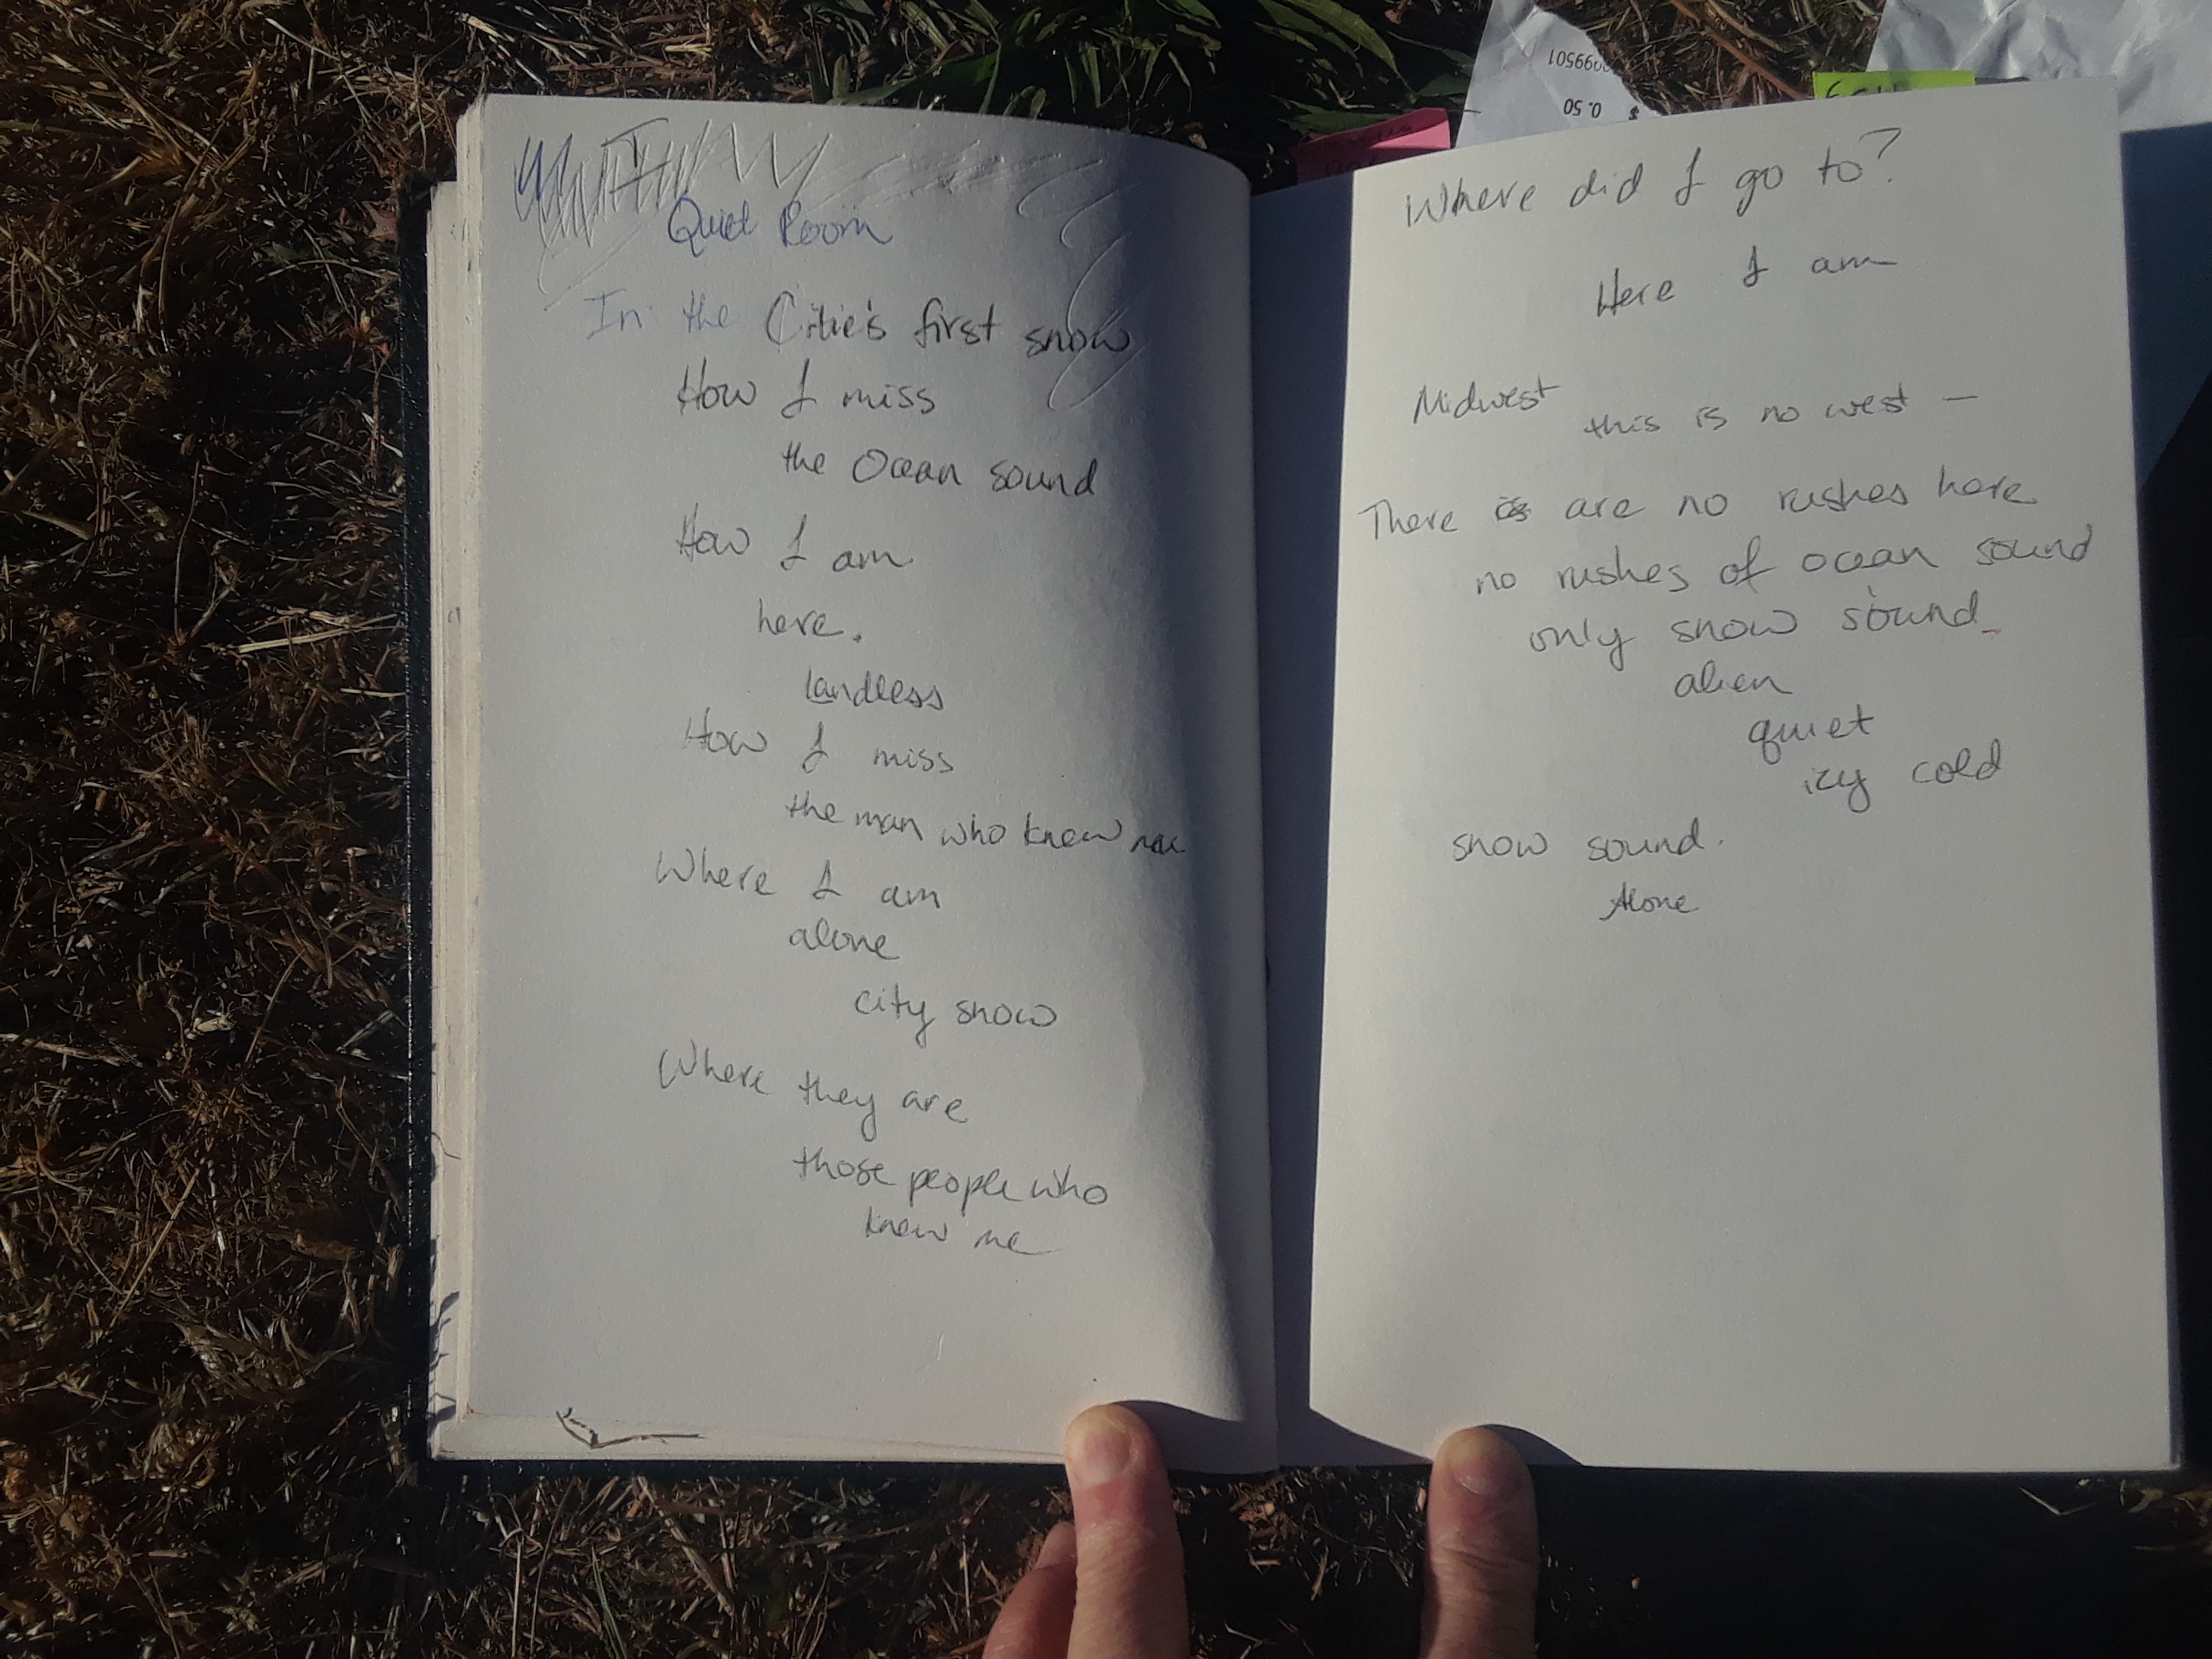 Quiet Room
In the Citie's first snow
How I miss
the Ocean sound
How I am
here.
landless
How I miss
the man who knew me
Where I am
alone
city snow
Where they are
those people who
knew me
0.50
$
Where did I go to?
Here I am
Midwest this is no west —
There are no rushes here
no rushes of ocean sound
only snow sound
alien
quiet
icy cold
snow sound.
Alone